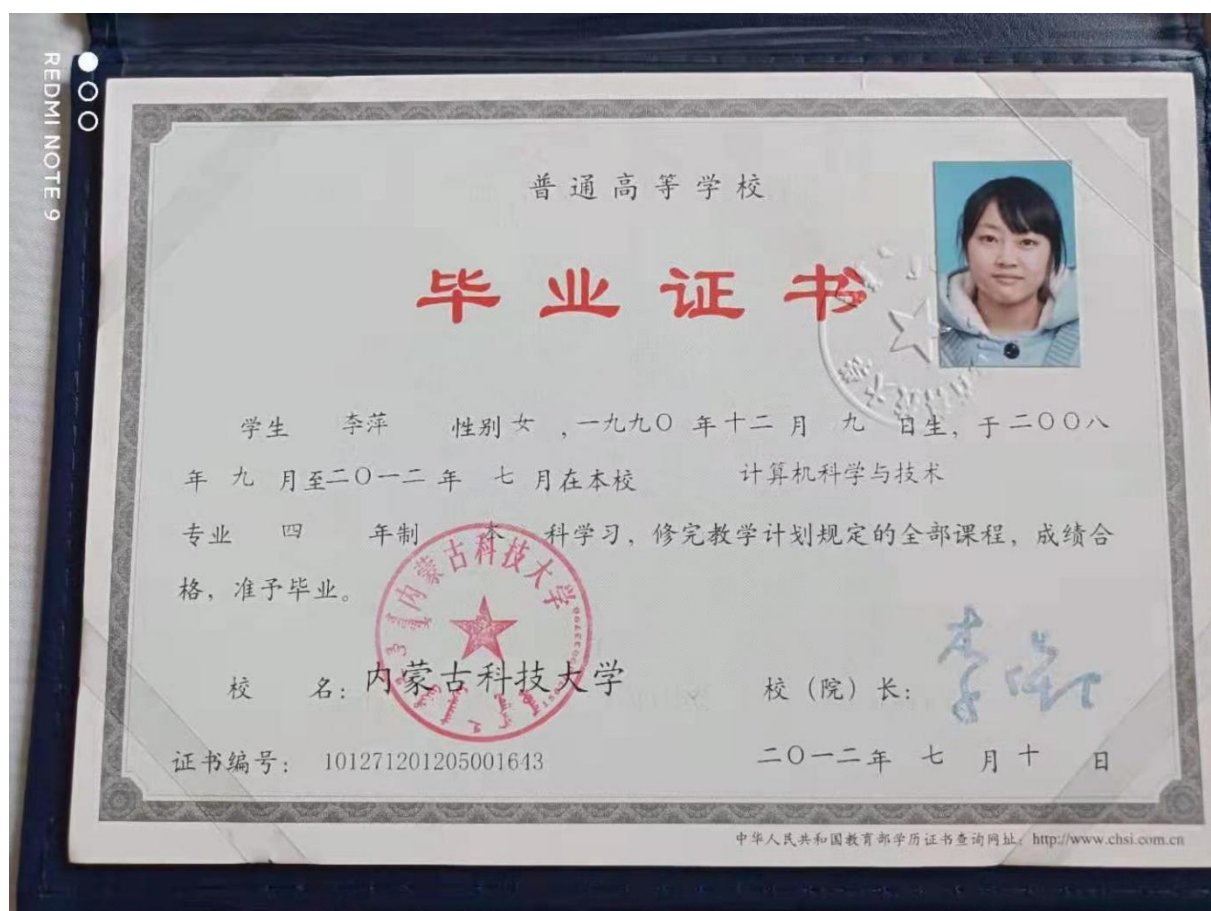 REDMI NOTE 9
普通高等学校
毕业证书
学生 李萍 性别 女 ，一九九〇 年 十二 月 九 日生，于二〇〇八
年 九 月至二〇一二 年 七 月在本校 计算机科学与技术
专业 四 年制 本 科学习，修完教学计划规定的全部课程，成绩合
格，准予毕业。
内蒙古科技大学
校 名：内蒙古科技大学 校（院）长：
证书编号： 101271201205001643 二〇一二年 七 月 十 日
中华人民共和国教育部学历证书查询网址：http://www.chsi.com.cn